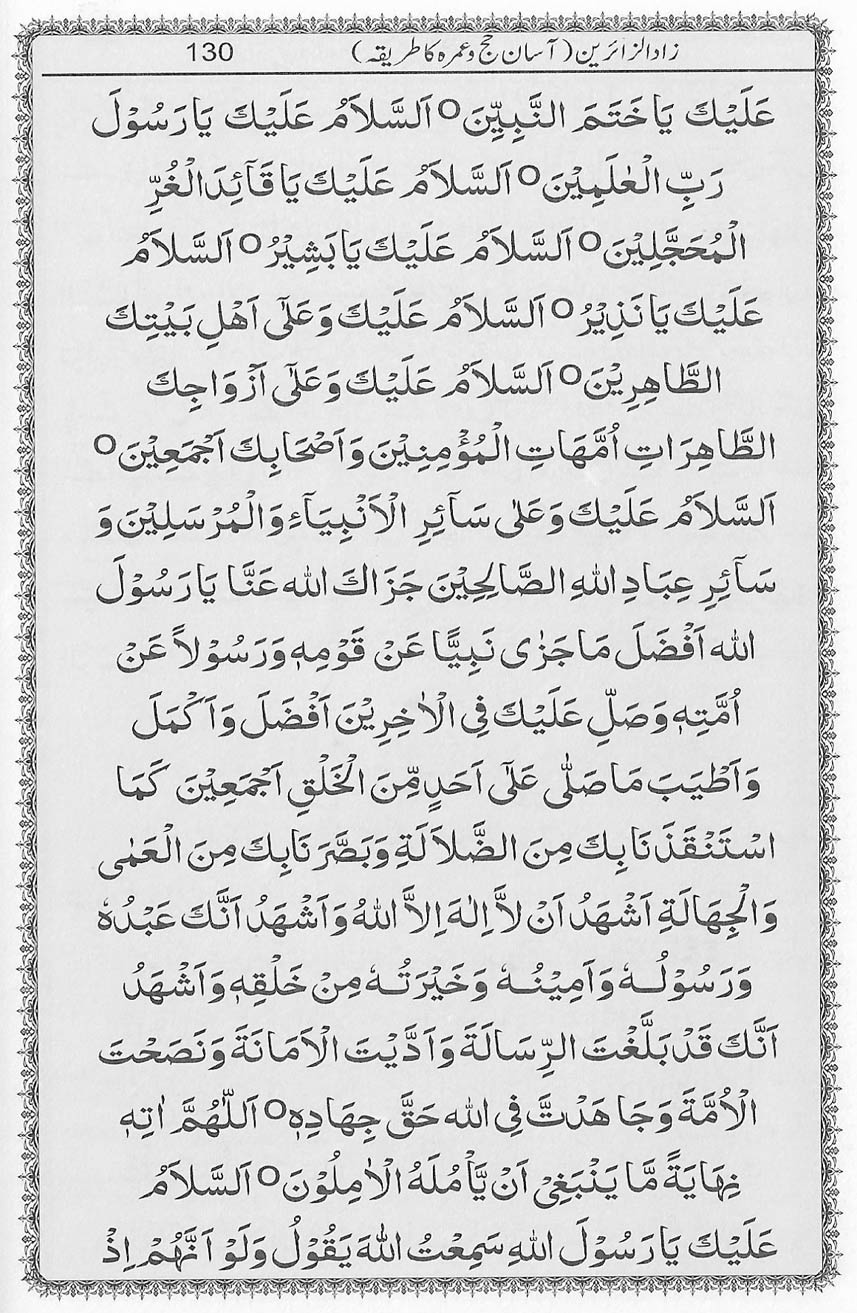 زاد الزائرین (آسان حج و عمرہ کا طریقہ) 130
عَلَیْكَ یَا خَتَمَ النَّبِیِّیْنَ○ اَلسَّلَامُ عَلَیْكَ یَا رَسُوْلَ
رَبِّ الْعٰلَمِیْنَ○ اَلسَّلَامُ عَلَیْكَ یَا قَآئِدَ الْغُرِّ
الْمُحَجَّلِیْنَ○ اَلسَّلَامُ عَلَیْكَ یَا بَشِیْرُ○ اَلسَّلَامُ
عَلَیْكَ یَا نَذِیْرُ○ اَلسَّلَامُ عَلَیْكَ وَعَلٰٓی اَهْلِ بَیْتِكَ
الطَّاهِرِیْنَ○ اَلسَّلَامُ عَلَیْكَ وَعَلٰٓی اَزْوَاجِكَ
الطَّاهِرَاتِ اُمَّهَاتِ الْمُؤْمِنِیْنَ وَاَصْحَابِكَ اَجْمَعِیْنَ○
اَلسَّلَامُ عَلَیْكَ وَعَلٰی سَآئِرِ الْاَنْبِیَآءِ وَالْمُرْسَلِیْنَ وَ
سَآئِرِ عِبَادِ اللهِ الصَّالِحِیْنَ جَزَاكَ الله عَنَّا یَا رَسُوْلَ
الله اَفْضَلَ مَا جَزٰی نَبِیًّا عَنْ قَوْمِهٖ وَرَسُوْلًا عَنْ
اُمَّتِهٖ وَصَلِّ عَلَیْكَ فِی الْاٰخِرِیْنَ اَفْضَلَ وَاَكْمَلَ
وَاَطْیَبَ مَا صَلّٰی عَلٰٓی اَحَدٍ مِّنَ الْخَلْقِ اَجْمَعِیْنَ كَمَا
اسْتَنْقَذَنَا بِكَ مِنَ الضَّلَالَةِ وَبَصَّرَنَا بِكَ مِنَ الْعَمٰی
وَالْجِهَالَةِ اَشْهَدُ اَنْ لَّا اِلٰهَ اِلَّا اللهُ وَاَشْهَدُ اَنَّكَ عَبْدُهٗ
وَرَسُوْلُهٗ وَاَمِیْنُهٗ وَخَیْرَتُهٗ مِنْ خَلْقِهٖ وَاَشْهَدُ
اَنَّكَ قَدْ بَلَّغْتَ الرِّسَالَةَ وَاَدَّیْتَ الْاَمَانَةَ وَنَصَحْتَ
الْاُمَّةَ وَجَاهَدْتَّ فِی الله حَقَّ جِهَادِهٖ○ اَللّٰهُمَّ اٰتِهٖ
نِهَایَةً مَّا یَنْبَغِیْ اَنْ یَّاْمُلَهُ الْاٰمِلُوْنَ○ اَلسَّلَامُ
عَلَیْكَ یَا رَسُوْلَ اللهِ سَمِعْتُ اللهَ یَقُوْلُ وَلَوْ اَنَّهُمْ اِذْ